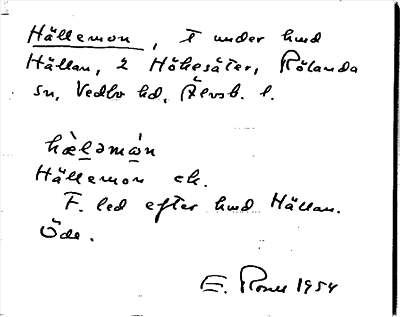 Hällemon, t under hmd
Hällan, 2 Hökesäter, Rölanda
sn, Vedbo hd, Älvsb. l.
hæ̀lǝmȧ̀n
Hällemon ek.
F. led efter hmd Hällan.
Öde.
E. 1954